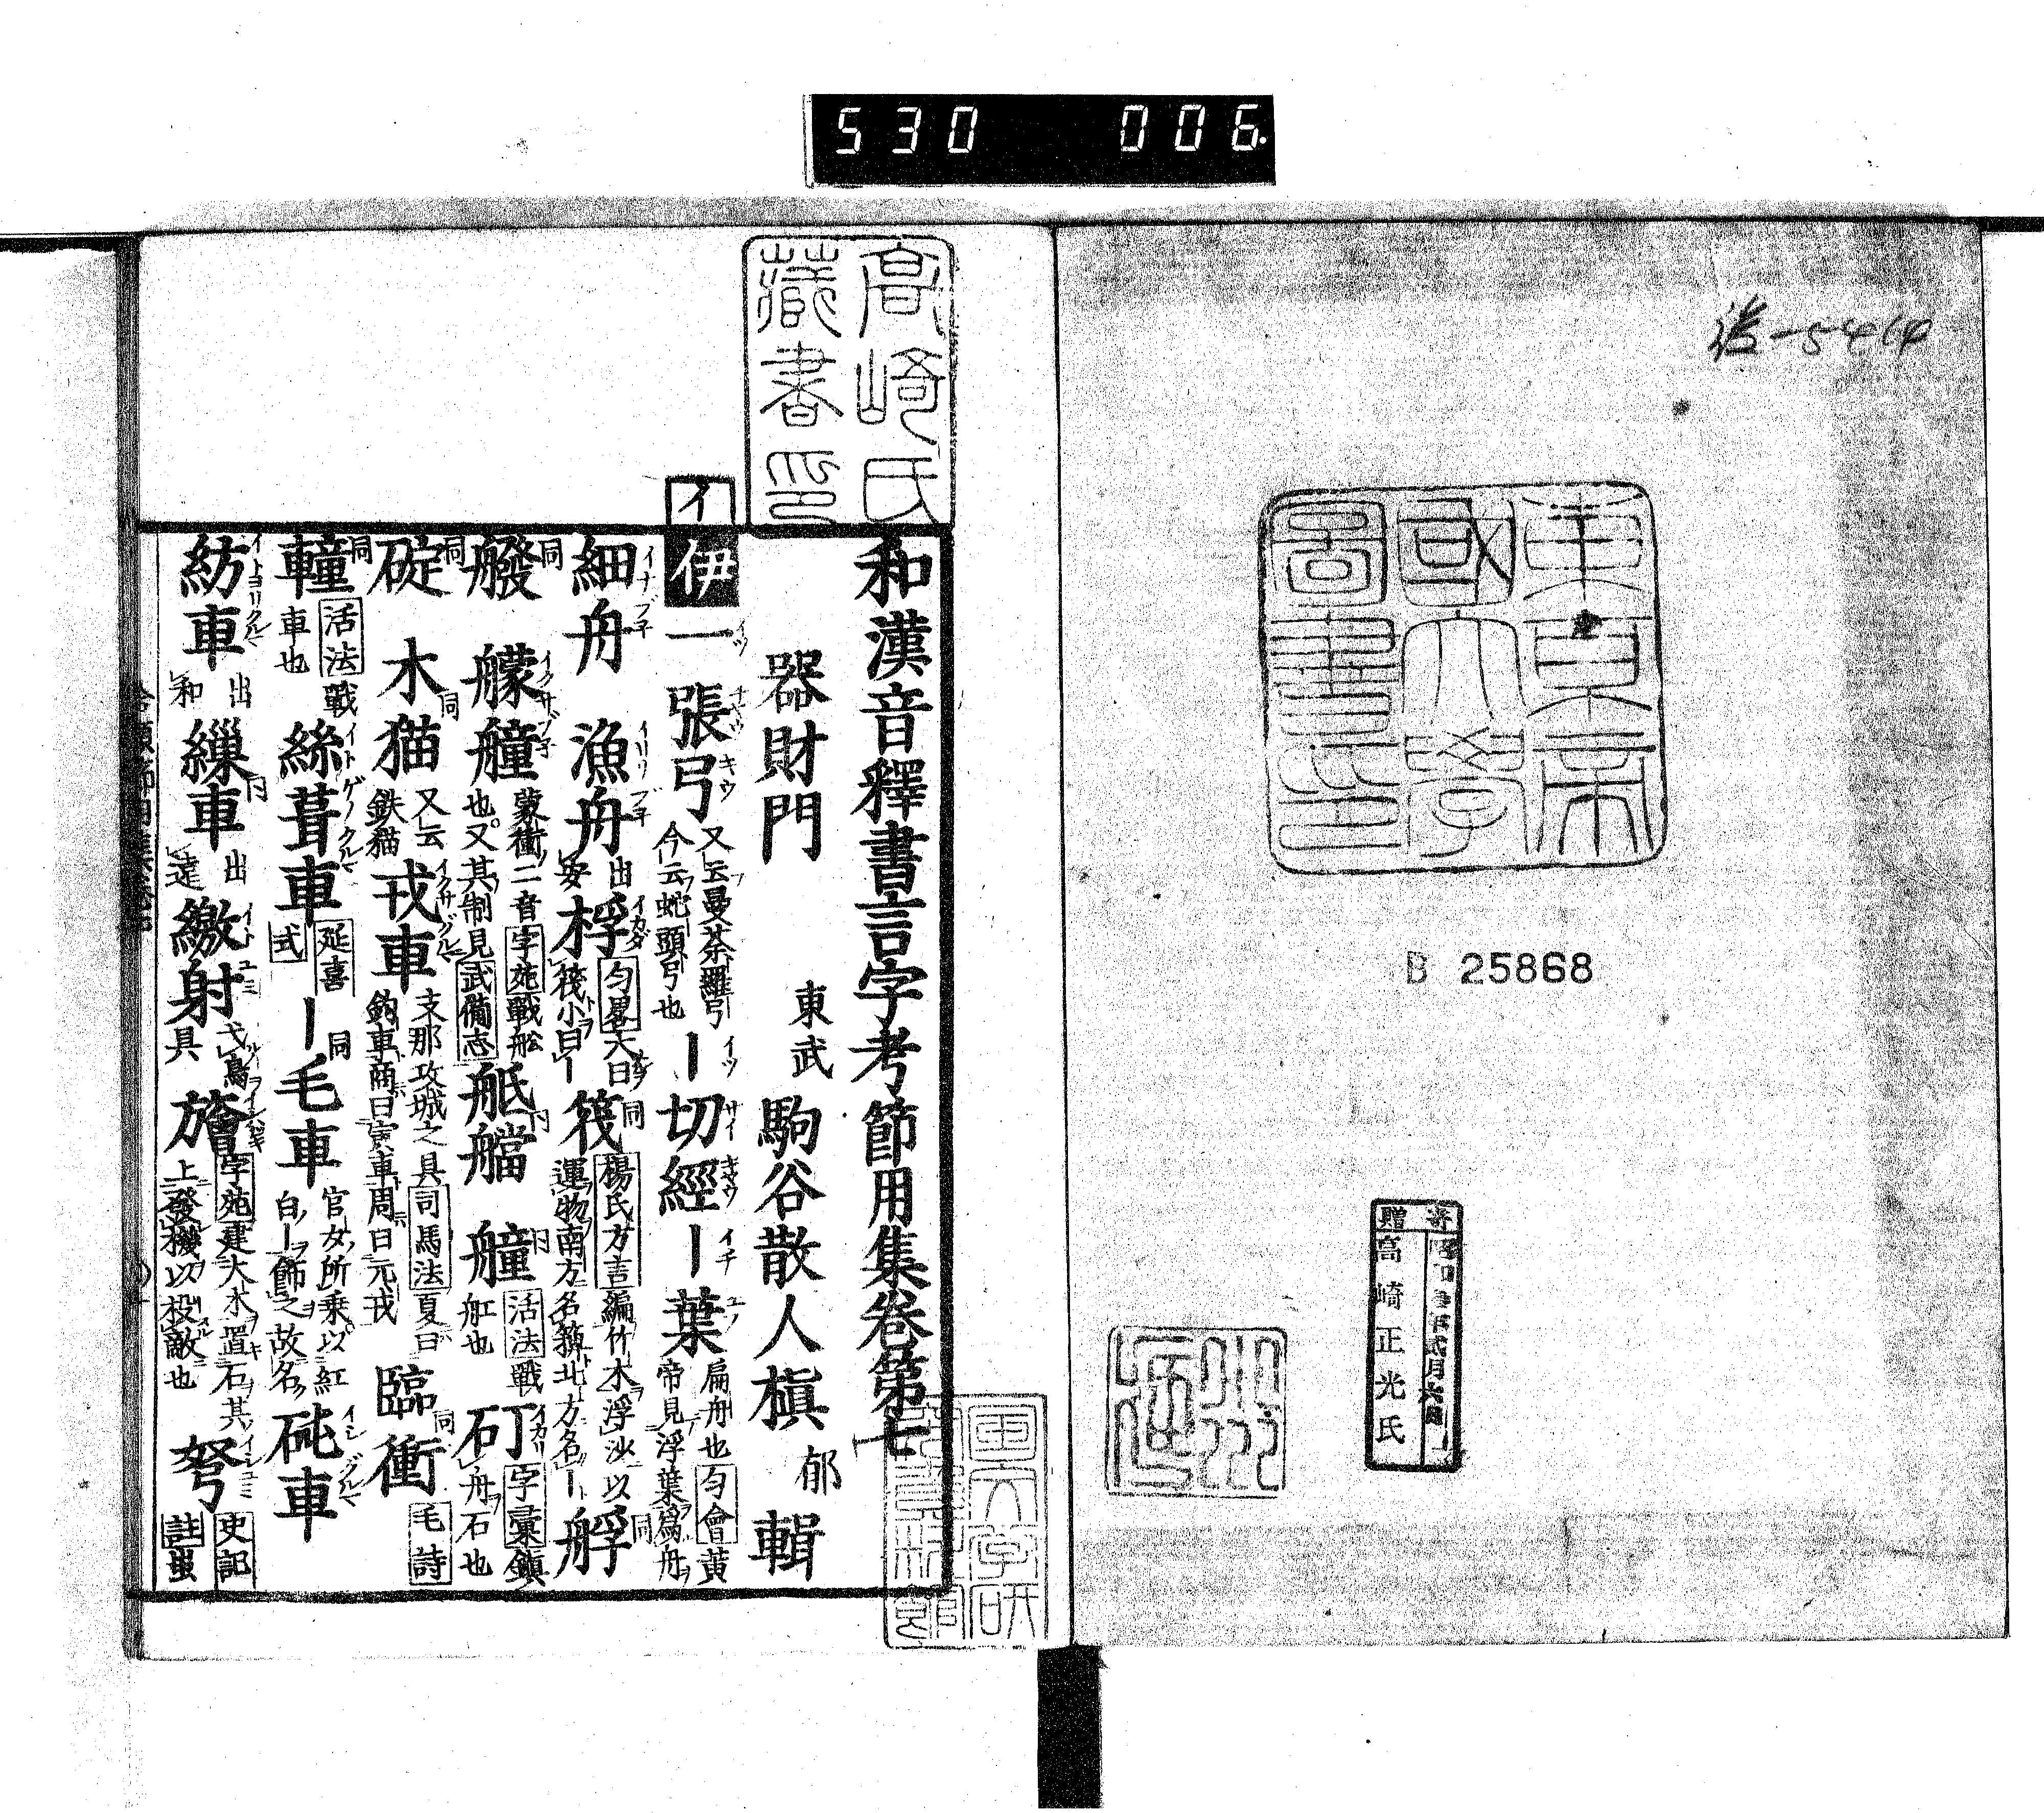 530 006.
B 25868
寄贈
高崎正光氏
東京帝國大學圖書印
高崎氏藏書印
イ
和漢音釋書言字考節用集卷第七
器財門 東武 駒谷散人槇 郁 輯
伊 一張弓 又云曼荼羅弓今云蛇頭弓也 ー切經 ー葉 扁舟也匀會黄帝見浮葉爲舟
細舟 漁舟 出安 桴 匀畧大曰筏小曰ー 筏 楊氏方言編竹木浮沙以運物南方名簰北方名ー 艀
艠 艨艟 蒙衝二音字苑戰舩也又其制見武備志 艍艡 艟 活法戰舡也 矴 字彙鎮舟石也
碇 木猫 又云鉄猫 戎車 支那攻城之具司馬法夏曰鉤車商曰寅車周曰元戎 臨衝 毛詩
䡴 活法戰車也 絲葺車 延喜式 ー毛車 官女所乘以紅白ー飾之故名 砘車
紡車 出和 繅車 出遠 繳射 弋鳥具 旝 字苑建大木置石其上發機以投敵也 弩 史記註蚩